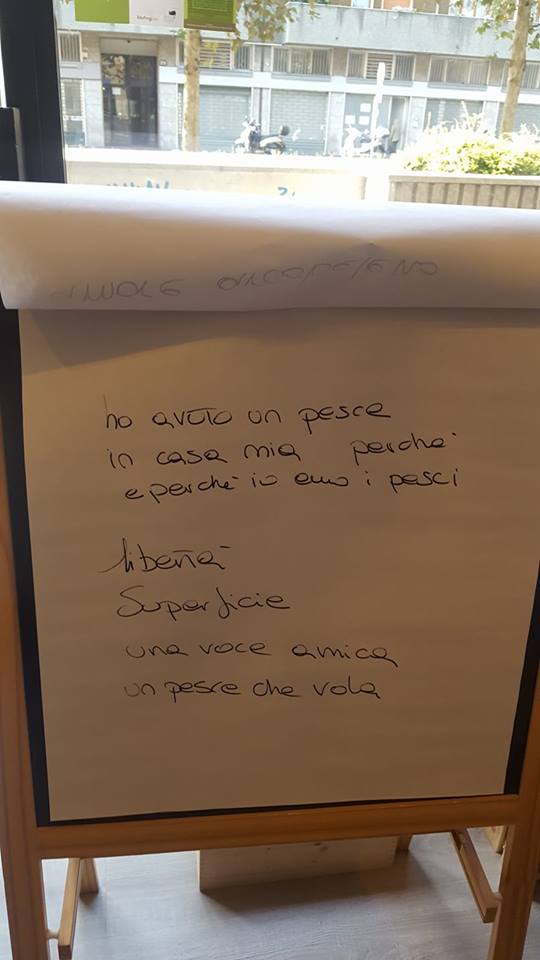 ho avuto un pesce
in casa mia perché
e perché io amo i pesci
libertà
Superficie
una voce amica
un pesce che vola